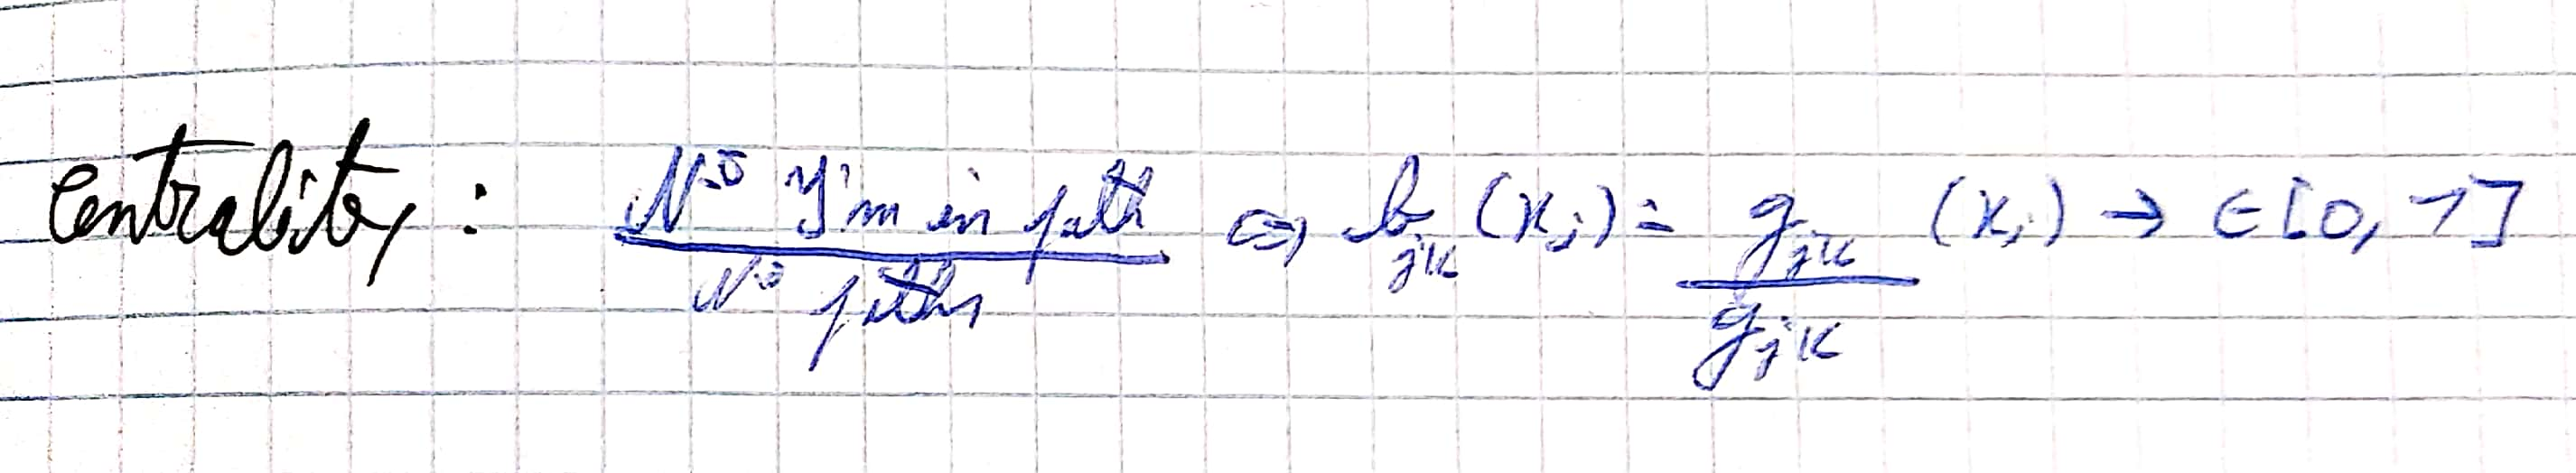 Centrality: N° I'm in path / N° paths <=> b_jk (x_i) = g_jk / g_jk (x_i) → ∈ [0, 1]